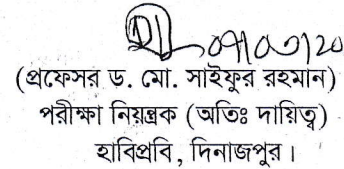 ০৭/০৩/২০
(প্রফেসর ড. মো. সাইফুর রহমান)
পরীক্ষা নিয়ন্ত্রক (অতিঃ দায়িত্ব)
হাবিপ্রবি, দিনাজপুর।